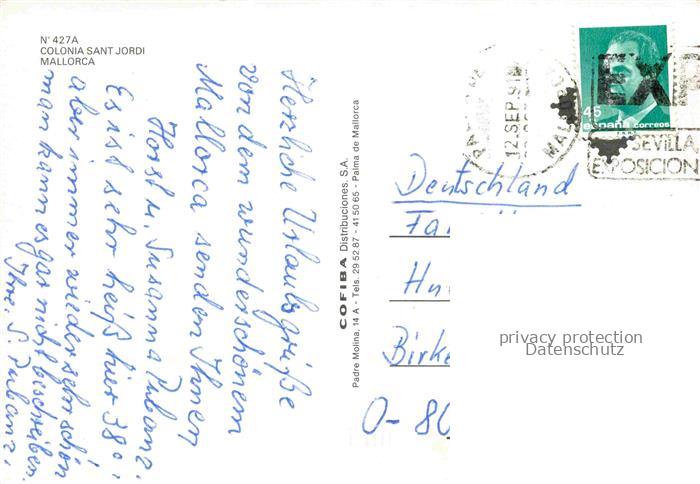 N° 427A
COLONIA SANT JORDI
MALLORCA
Herzliche Urlaubsgrüße
von dem wunderschönem
Mallorca senden Ihnen
Horst u. Susanna
Es ist sehr heiß hier 38°
aber immer wieder sehr schön
man kann es gar nicht beschreiben.
Ihre S.
COFIBA Distribuciones, S.A.
Padre Molina, 14 A - Tels. 29 52 87 - 41 50 65 - Palma de Mallorca
12 SEP 91
MALLORCA
45
españa correos
EXP
SEVILLA,
EXPOSICION
Deutschland
Fa
Hu
Birke
O-80
privacy protection
Datenschutz